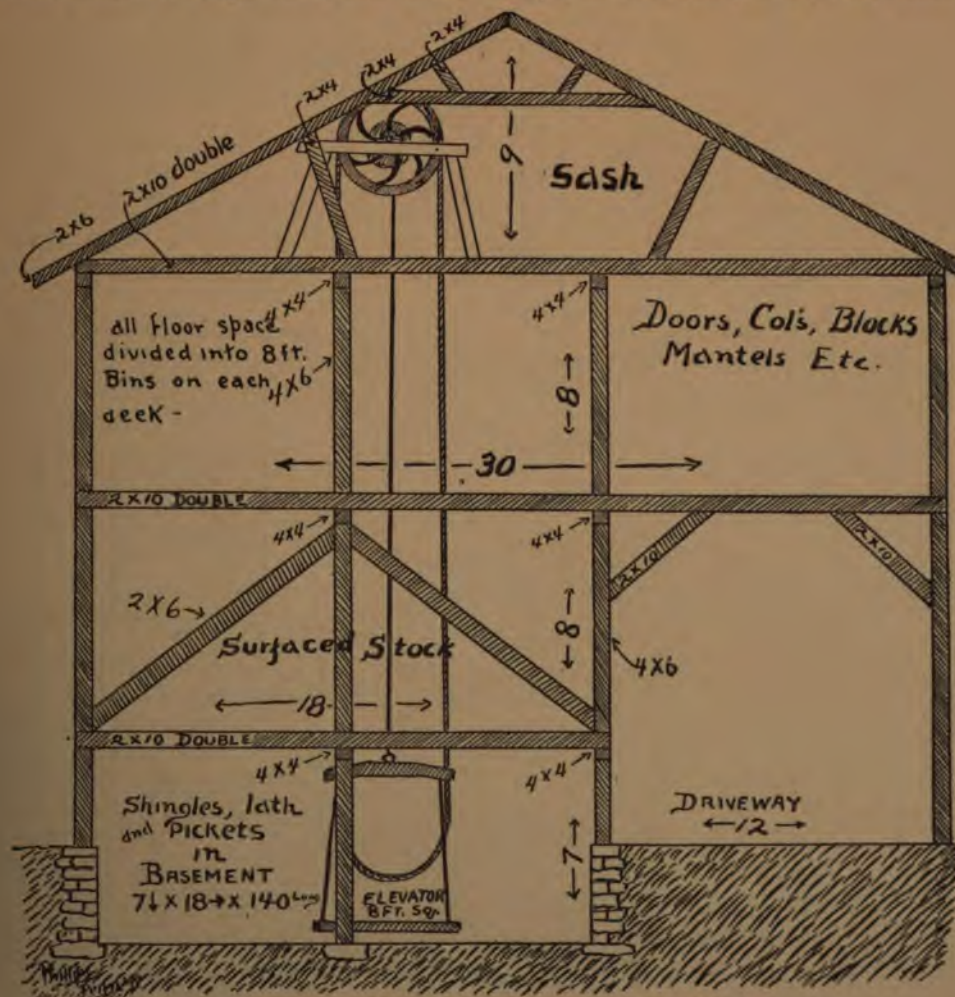 2x4
2x4
2x4
2x10 double
2x6
9
Sash
all floor space
divided into 8ft.
Bins on each
deck -
4x4
4x6
4x4
8
Doors, Col's, Blocks
Mantels Etc.
30
2x10 DOUBLE
4x4
4x4
2x10
2x10
2x6
8
Surfaced Stock
4x6
18
2x10 DOUBLE
4x4
4x4
Shingles, lath
and Pickets
in
BASEMENT
7↓ x 18→ x 140 Long
ELEVATOR
8FT. Sqr.
7
DRIVEWAY
12